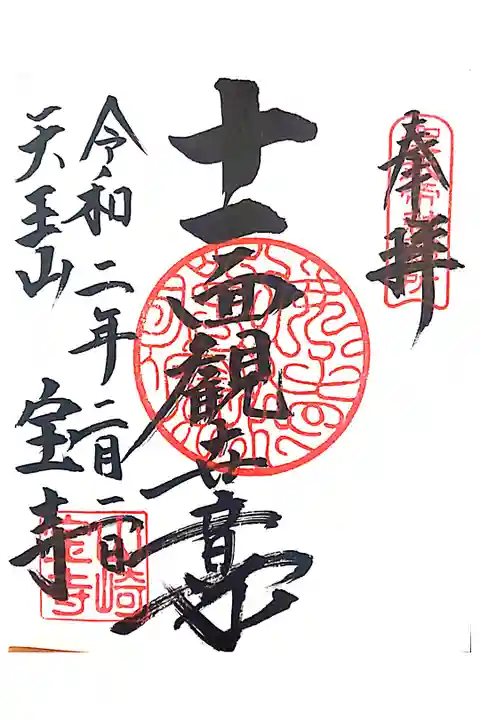 奉拝
十一面観世音
令和二年二月一日
天王山 宝寺
山崎
宝寺